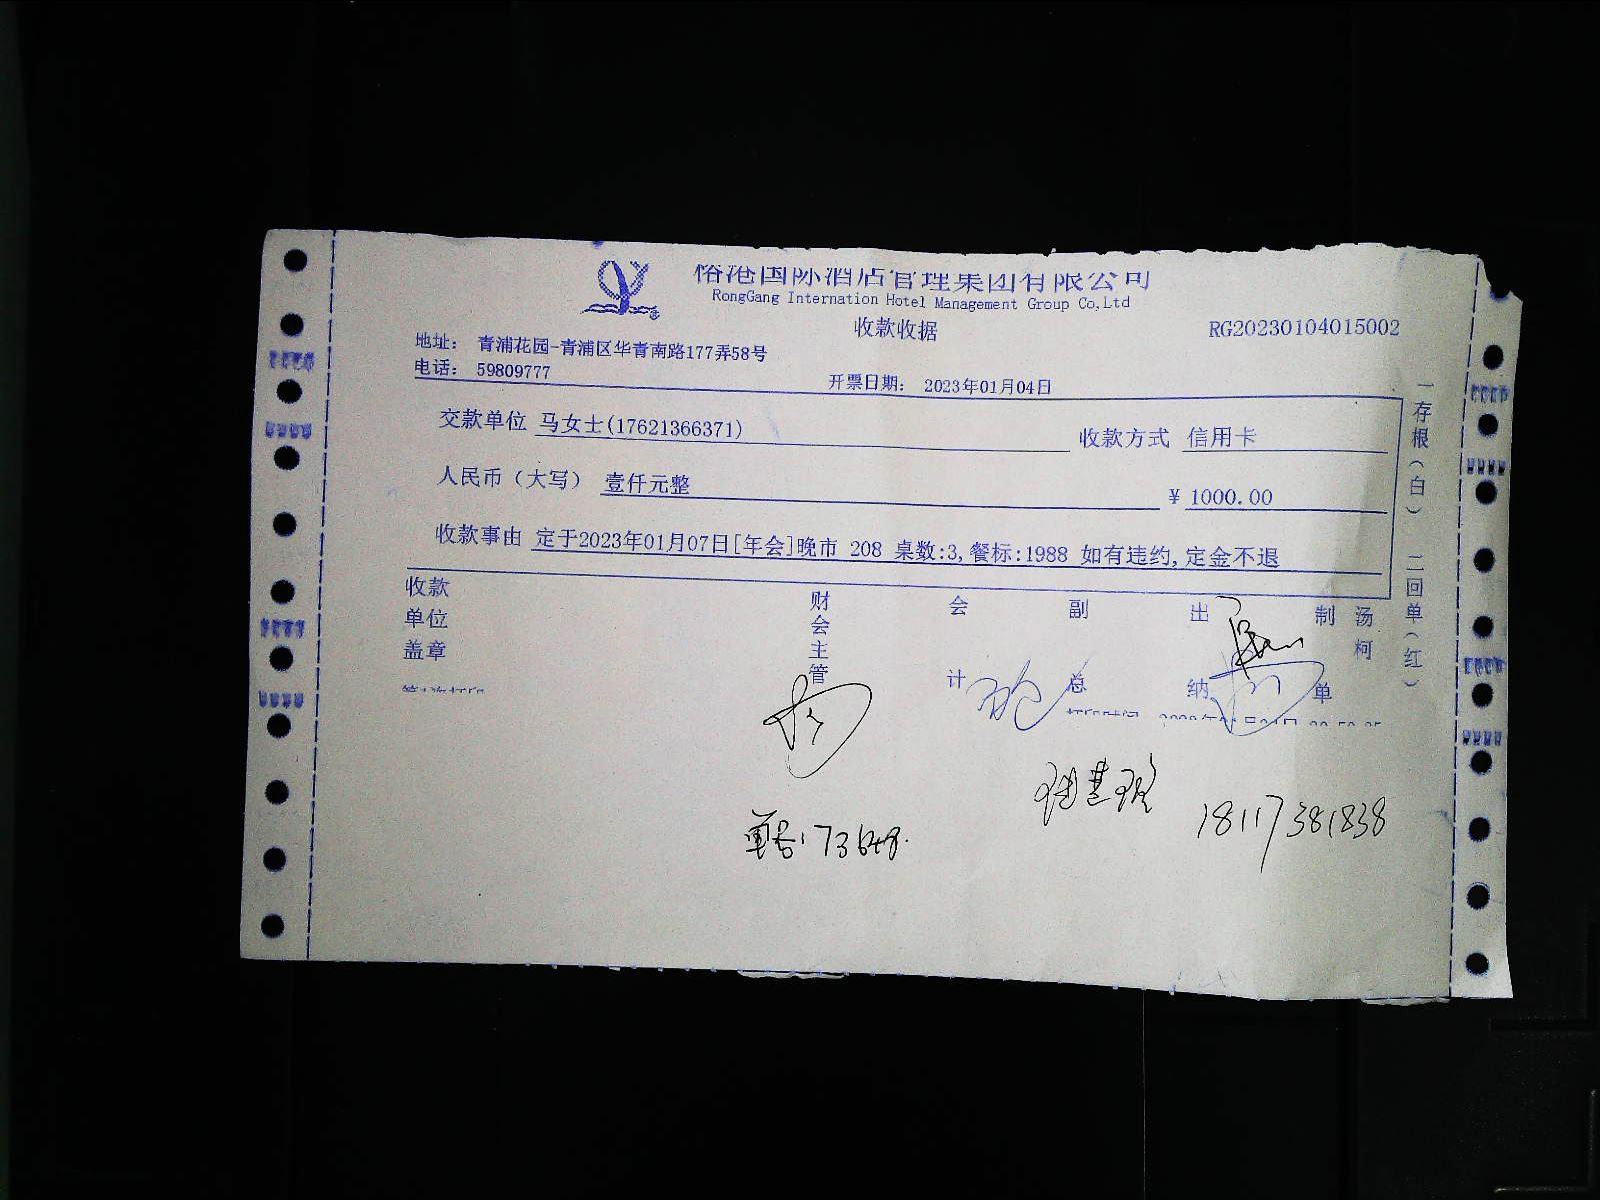 裕港国际酒店管理集团有限公司
RongGang Internation Hotel Management Group Co,Ltd
收款收据
RG20230104015002
地址： 青浦花园-青浦区华青南路177弄58号
电话： 59809777
开票日期： 2023年01月04日
交款单位 马女士(17621366371)
收款方式 信用卡
人民币（大写） 壹仟元整
¥ 1000.00
收款事由 定于2023年01月07日[年会]晚市 208 桌数:3,餐标:1988 如有违约,定金不退
一存根（白） 二回单（红）
收款单位盖章
财会主管
会计
副总
出纳
制单
汤柯
单号:73648.
18117381838